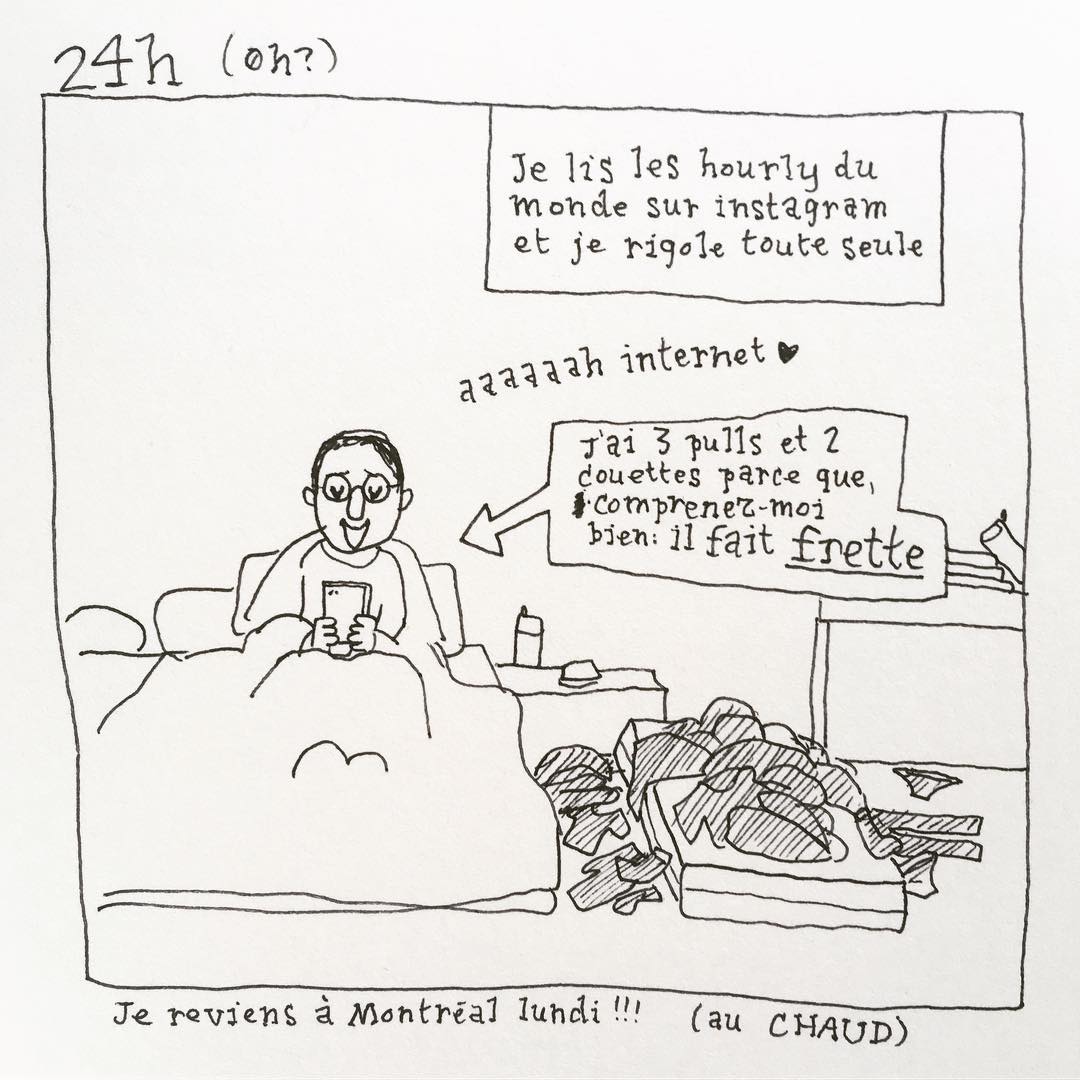 24h (0h?)
Je lis les hourly du
monde sur instagram
et je rigole toute seule
aaaaaah internet ♥
J'ai 3 pulls et 2
couettes parce que,
comprenez-moi
bien: il fait frette
Je reviens à Montréal lundi!!! (au CHAUD)